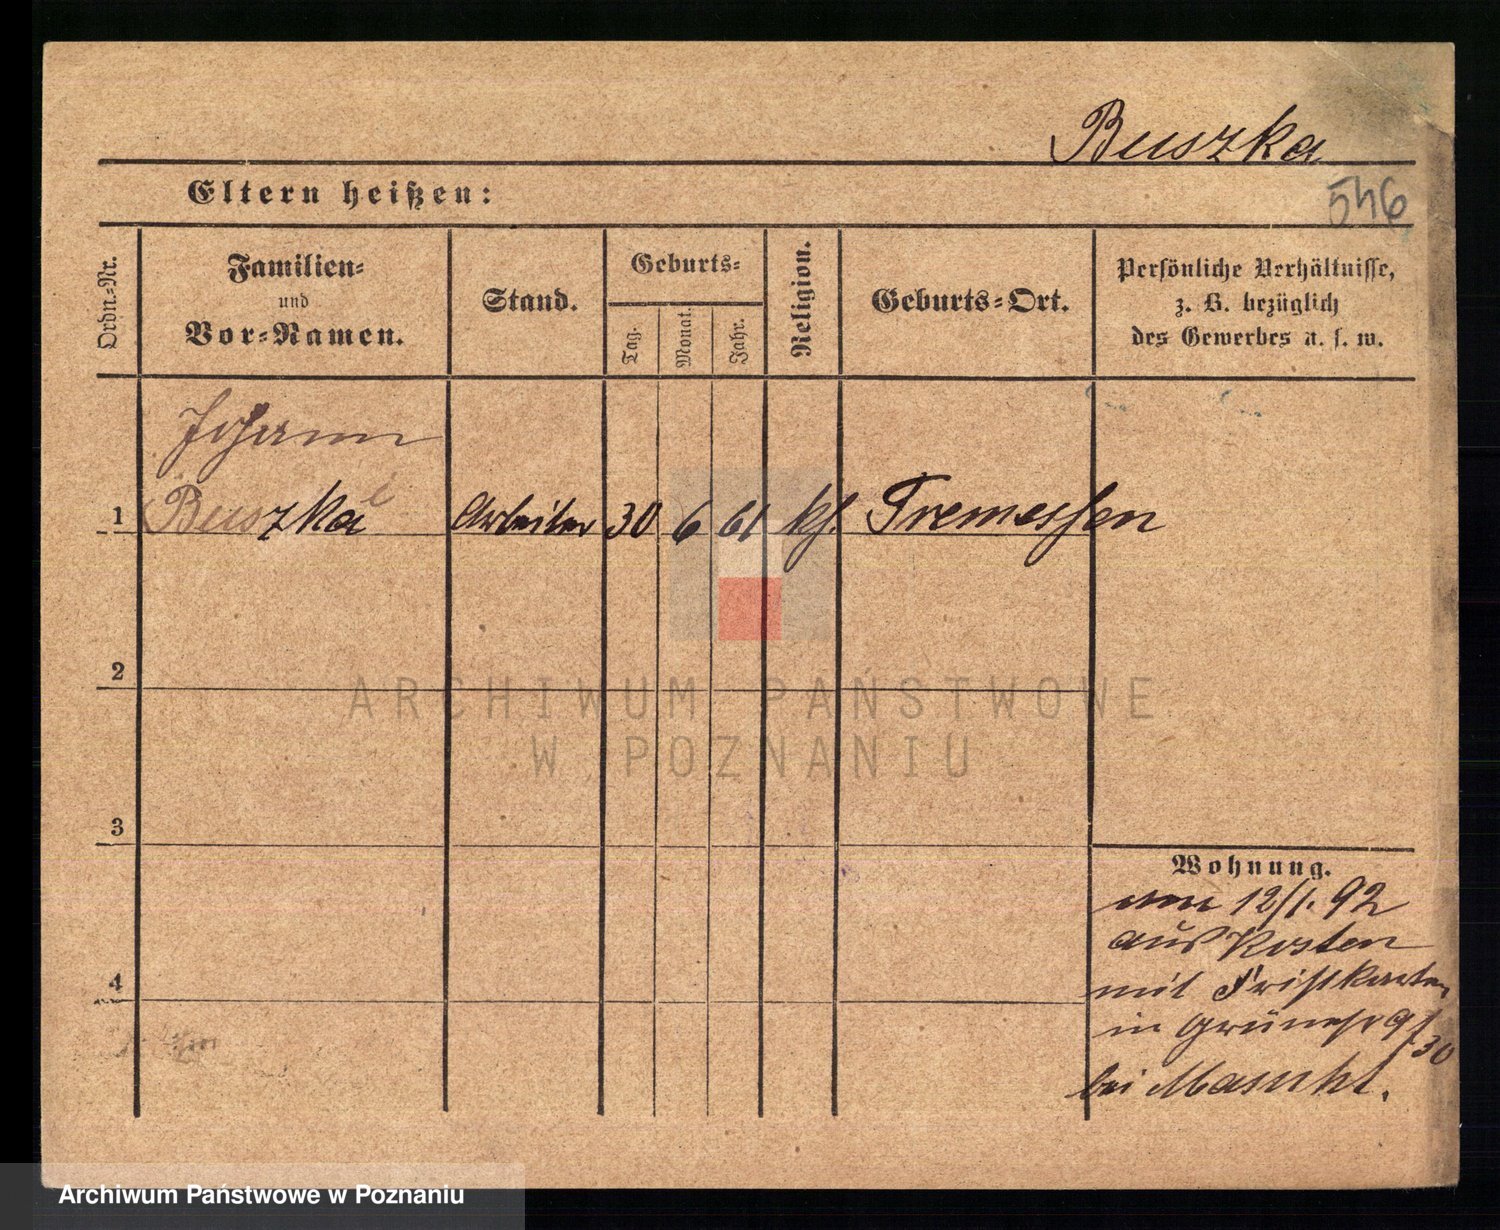 Buszka
Eltern heißen:
546
Ordn.-Nr.
Familien-
und
Vor-Namen.
Stand.
Geburts-
Tag.
Monat.
Jahr.
Religion.
Geburts-Ort.
Persönliche Verhältnisse,
z. B. bezüglich
des Gewerbes u. s. w.
Johann
1 Buszka Arbeiter 30 6 61 kh. Tremessen
2
ARCHIWUM PAŃSTWOWE
W POZNANIU
3
Wohnung.
12/1. 92
aus Kosten
mit
in
30
4
bei
Archiwum Państwowe w Poznaniu